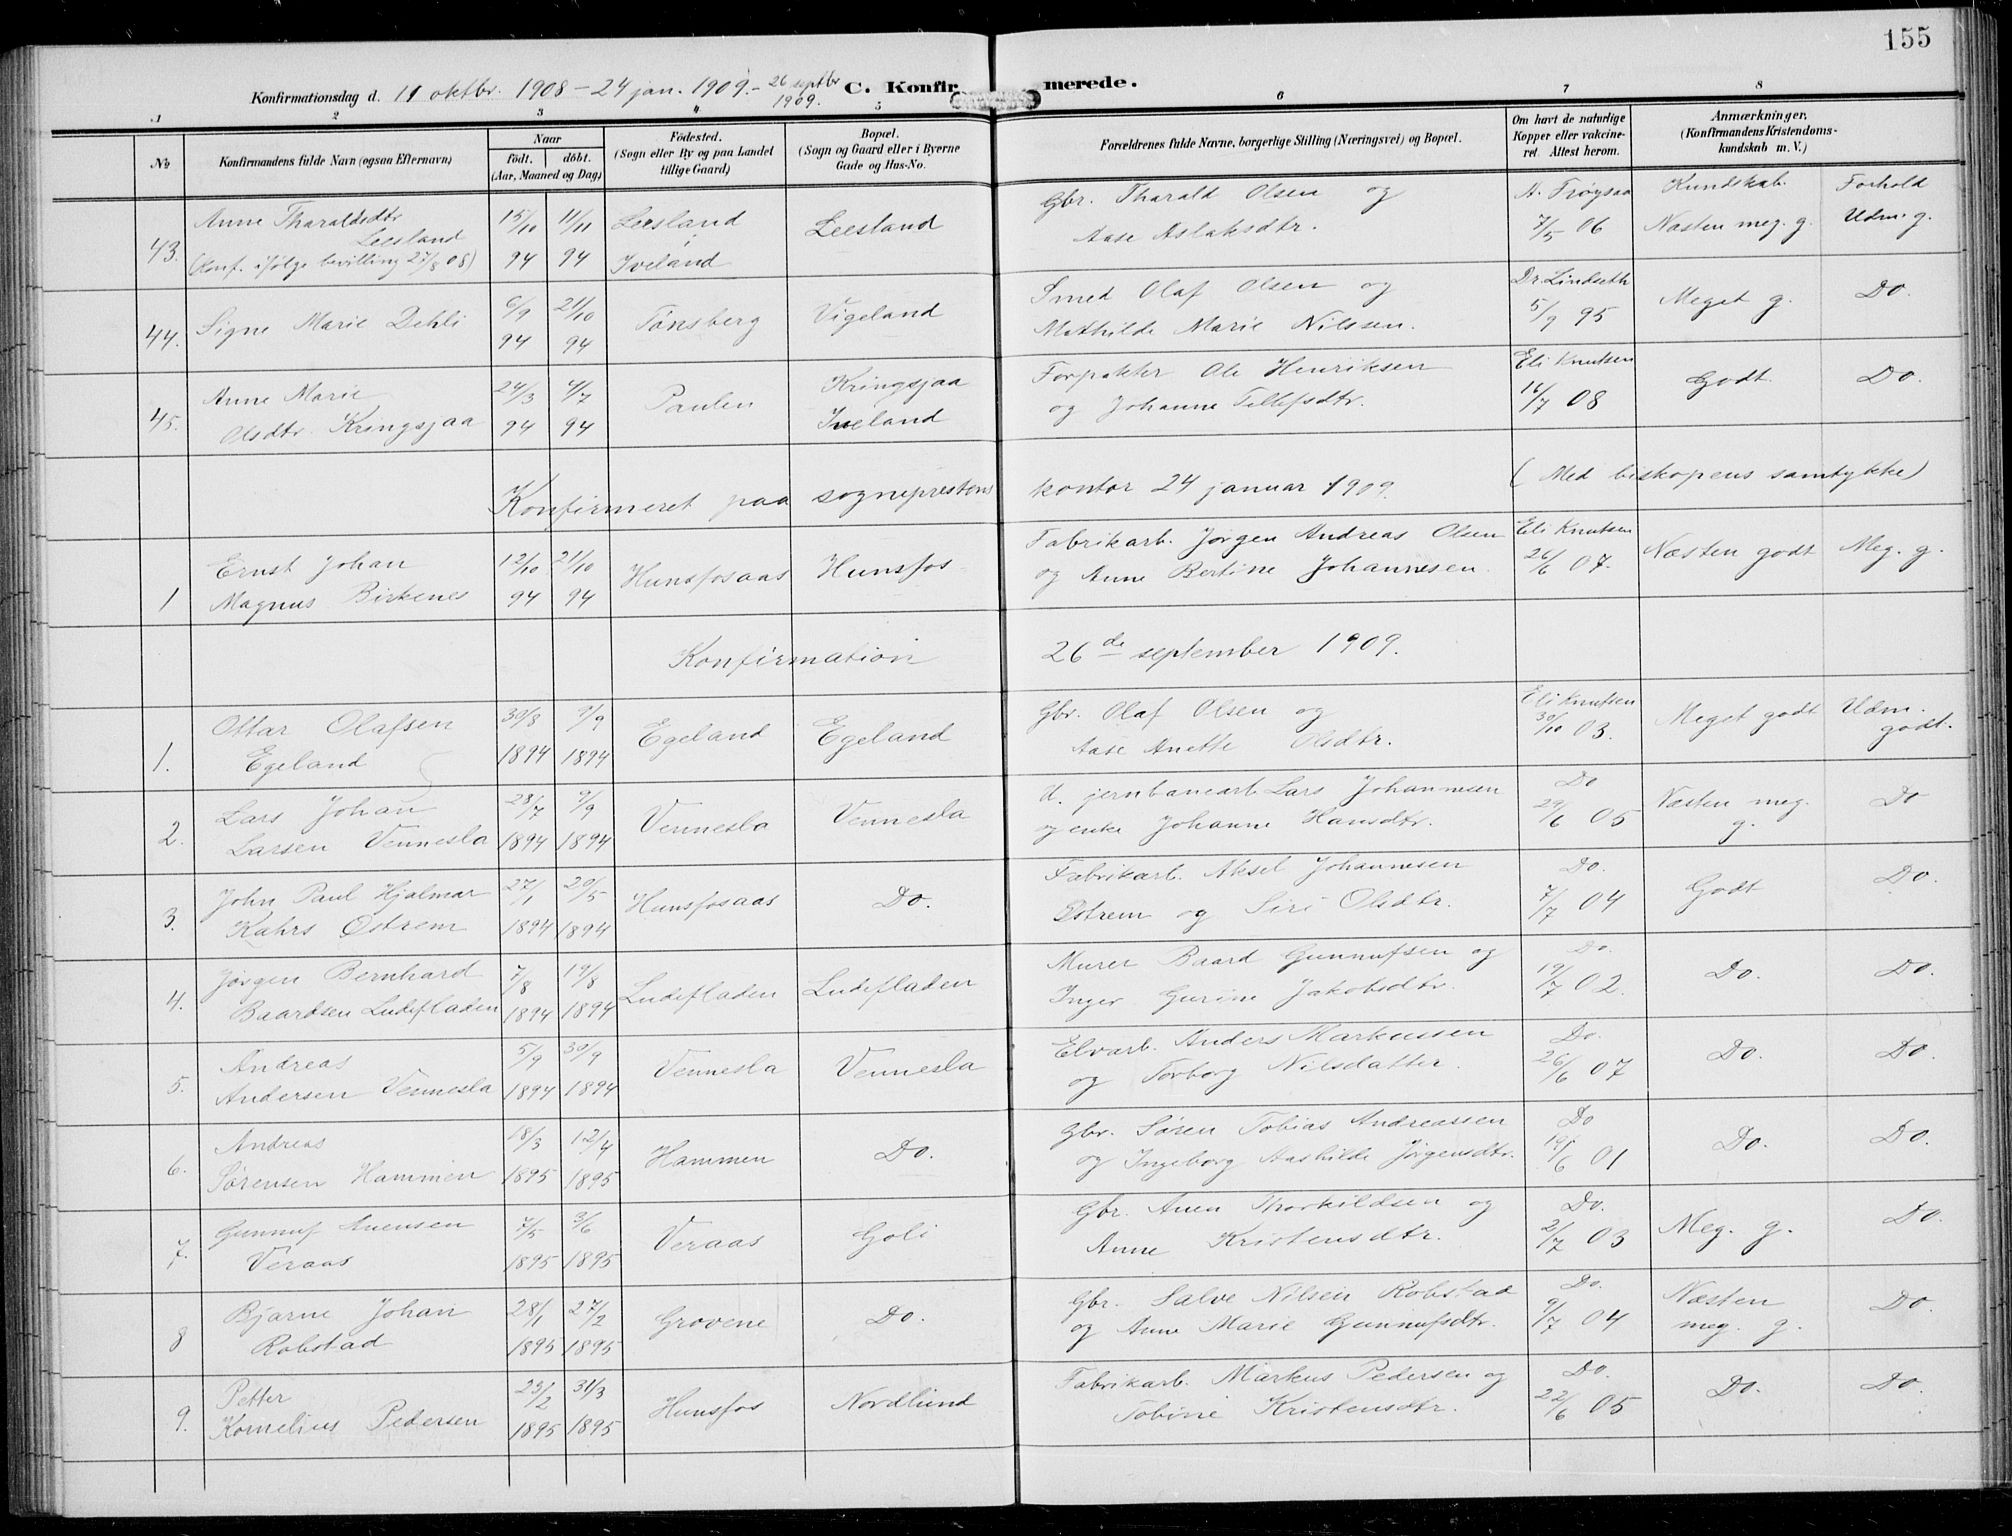 155
Konfirmationsdag d. 11 oktbr. 1908 – 24 jan. 1909. – 26 septbr 1909. C. Konfirmerede.
1 2 3 4 5 6 7 8
No
Konfirmandens fulde Navn (ogsaa Efternavn)
Naar
født. døbt.
(Aar, Maaned og Dag)
Fødested.
(Sogn eller By og paa Landet
tillige Gaard)
Bopæl.
(Sogn og Gaard eller i Byerne
Gade og Hus-No.
Forældrenes fulde Navne, borgerlige Stilling (Næringsvei) og Bopæl.
Om havt de naturlige
Kopper eller vakcine-
ret. Attest herom.
Anmærkninger.
(Konfirmandens Kristendoms-
kundskab m. V.)
Kundskab. Forhold
43. Anne Tharaldsdtr 15/10 11/11 Leesland Leesland Gbr. Tharald Olsen og A. Trøysaa
Leesland 94 94 i Aase Aslaksdtr. 7/5 06 Næsten meg. g. Udm. g.
(Konf. ifølge bevilling 27/8 08) Iveland
44. Signe Marie Dehli 6/9 21/10 Tønsberg Vigeland Smed Olaf Olsen og Dr. Lindseth Meget g. Do.
94 94 Mathilde Marie Nilssen. 5/9 95
45. Anne Marie 24/3 4/7 Paulen Kringsjaa Forpakter Ole Henriksen Eli Knutsen Godt. Do.
Olsdtr. Kringsjaa 94 94 Iveland og Johanne Tellefsdtr. 16/7 08
Konfirmeret paa sogneprestens kontor 24 januar 1909. (Med biskopens samtykke)
1 Ernst Johan 12/10 21/10 Hunsfosaas Hunsfos Fabrikarb. Jørgen Andreas Olsen Eli Knutsen Næsten godt Meg. g.
Magnus Birkenes 94 94 og Anne Bertine Johannesen. 26/6 07.
Konfirmation 26de september 1909.
1. Ottar Olafsen 30/8 9/9 Egeland Egeland Gbr. Olaf Olsen og Eli Knutsen Meget godt Udm.
Egeland 1894 1894 Aase Anette Olsdtr. 30/10 03. godt.
2. Lars Johan 28/7 9/9 Vennesla Vennesla d. jernbanearb. Lars Johannesen Do Næsten meg. Do
Larsen Vennesla 1894 1894 og enke Johanne Hansdtr. 29/6 05 g.
3. John Paul Hjalmar 27/1 20/5 Hunsfosaas Do. Fabrikarb. Aksel Johannesen Do. Godt Do.
Kahrs Østrem 1894 1894 Østrem og Siri Olsdtr. 7/7 04
4. Jørgen Bernhard 7/8 19/8 Ludefladen Ludefladen Murer Baard Gunnufsen og Do. Do. Do.
Baardsen Ludefladen 1894 1894 Inger Gurine Jakobsdtr. 19/7 02.
5. Andreas 5/9 30/9 Vennesla Vennesla Elvarb. Anders Markussen Do. Do. Do.
Andersen Vennesla 1894 1894 og Torborg Nilsdatter. 26/6 07
6. Andreas 18/3 12/4 Hammen Do. Gbr. Søren Tobias Andreassen Do Do. Do.
Sørensen Hammen 1895 1895 og Ingeborg Aashilde Jørgensdtr. 19/6 01
7. Gunnuf Auensen 7/5 3/6 Veraas Goli Gbr. Auen Thorkildsen og Do. Meg. g. Do.
Veraas 1895 1895 Anne Kristensdtr. 2/7 03
8 Bjarne Johan 28/1 27/2 Grovene Do. Gbr. Salve Nilsen Robstad Do. Næsten Do.
Robstad 1895 1895 og Anne Marie Gunnufsdtr. 9/7 04 meg. g.
9. Petter 23/2 31/3 Hunsfos Nordlund Fabrikarb. Markus Pedersen og Do. Do. Do.
Kornelius Pedersen 1895 1895 Tobine Kristensdtr. 22/6 05